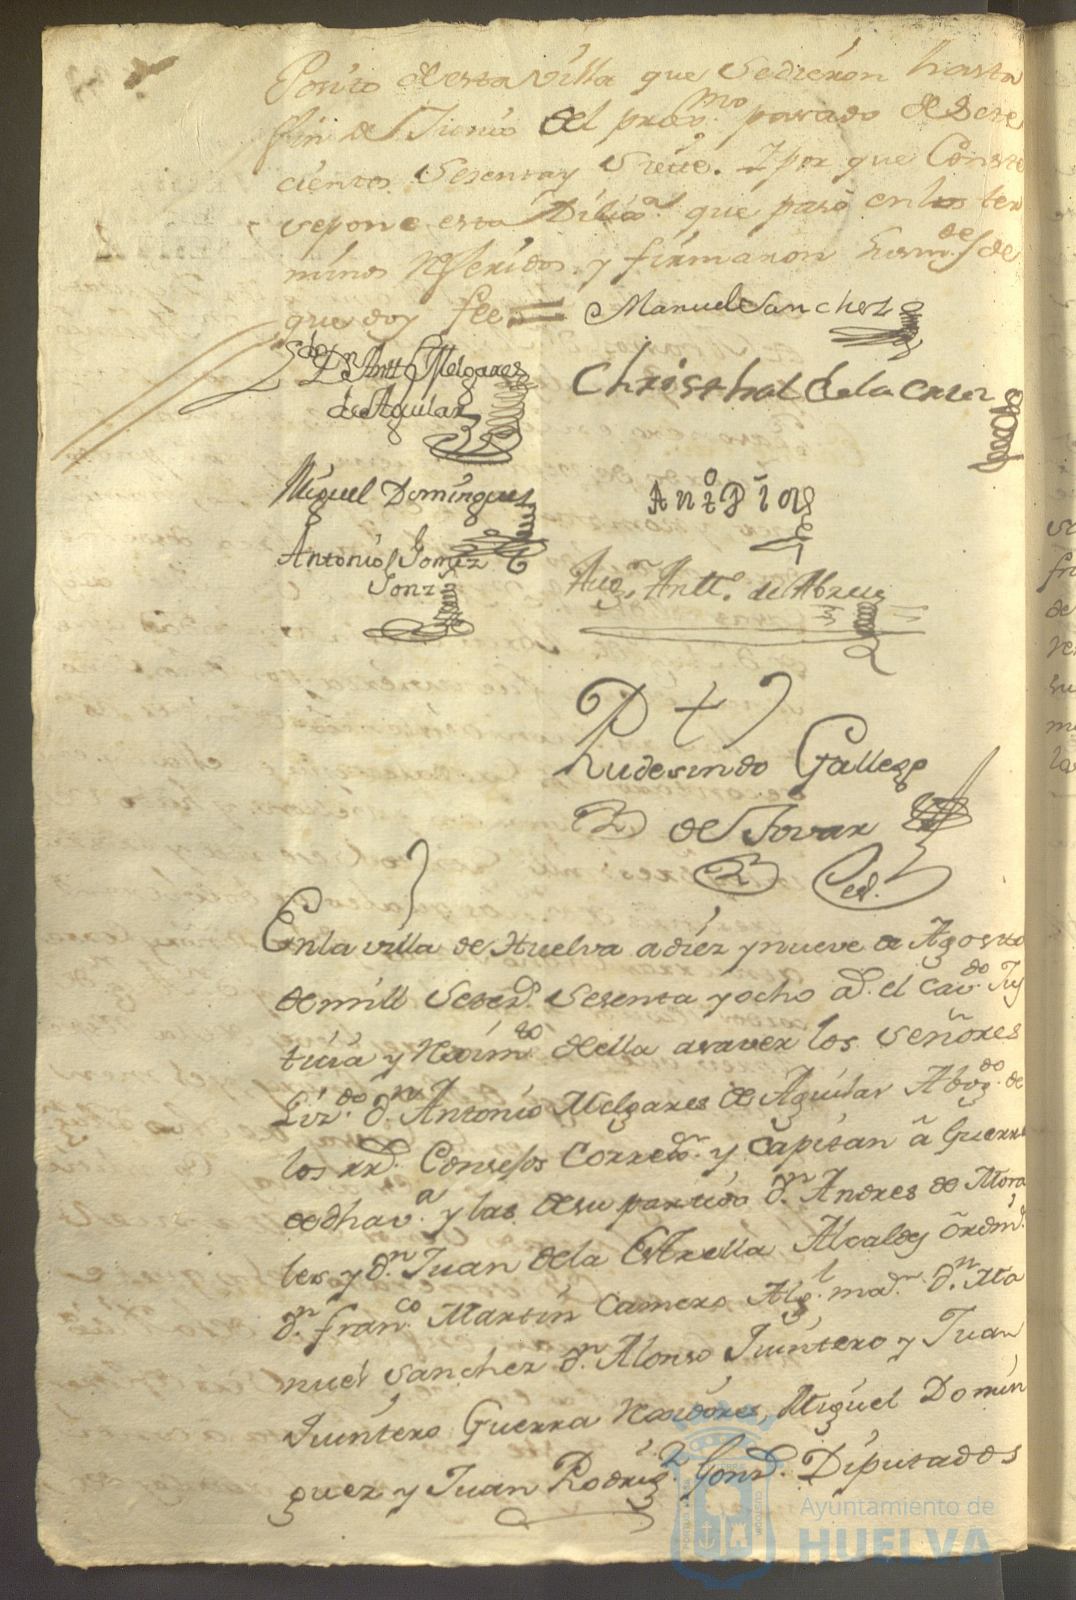 Posito de esta villa que se dieron hasta
fin de Junio del proxmo. pasado de Sete
cientos Sesenta y Siete. Y por que Conste
se pone esta Dilixa. que pasò en los ter
minos referidos, y firmaron sus mdes. de
que doy fee =
Manuel Sanchez
Lizdo. Dn. Antto. Melgarexo
de Aguilar
Christhal de la Corte
Miguel Dominguez
Anto Diaz
Antonio Gomez
Gonz
Augn. Antto. de Abreu
Rudesindo Gallego
de Tovar
En la villa de Huelva a diez y nueve de Agosto
de mill Seteзs. Sesenta y ocho as. el Cavdo. Jus
ticia y Reximto. della a saver los Señores
Lizdo. dn. Antonio Melgares de Aguilar Abogdo. de
los rrs. Consejos Corredor. y Capitan â Guerra
de dha va. y las de su partido dn. Andres de Mora
les y dn. Juan de la Estrella Alcaldes ôrdins.
dn. franco. Martin Camero Algl. mar. dn. Ma
nuel Sanchez dn. Alonso Quintero y Juan
Quintero Guerra Rexidores, Miguel Domin
guez y Juan Rodrigz. Gonz. Diputados
Ayuntamiento de
HUELVA